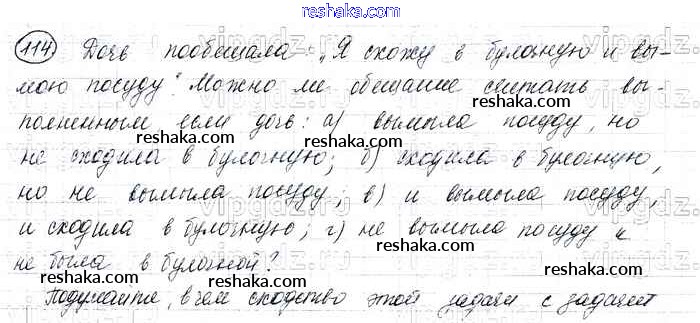 reshaka.com
114 Дочь пообещала: „Я схожу в булочную и вы-
мою посуду". Можно ли обещание считать вы-
полненным если дочь: а) вымыла посуду, но
не сходила в булочную; б) сходила в булочную,
но не вымыла посуду; в) и вымыла посуду,
и сходила в булочную; г) не вымыла посуду и
не была в булочной?
Подумайте, в чем сходство этой задачи с задачей
vipgdz.ru
reshaka.com
reshaka.com
reshaka.com
reshaka.com
reshaka.com
reshaka.com
reshaka.com